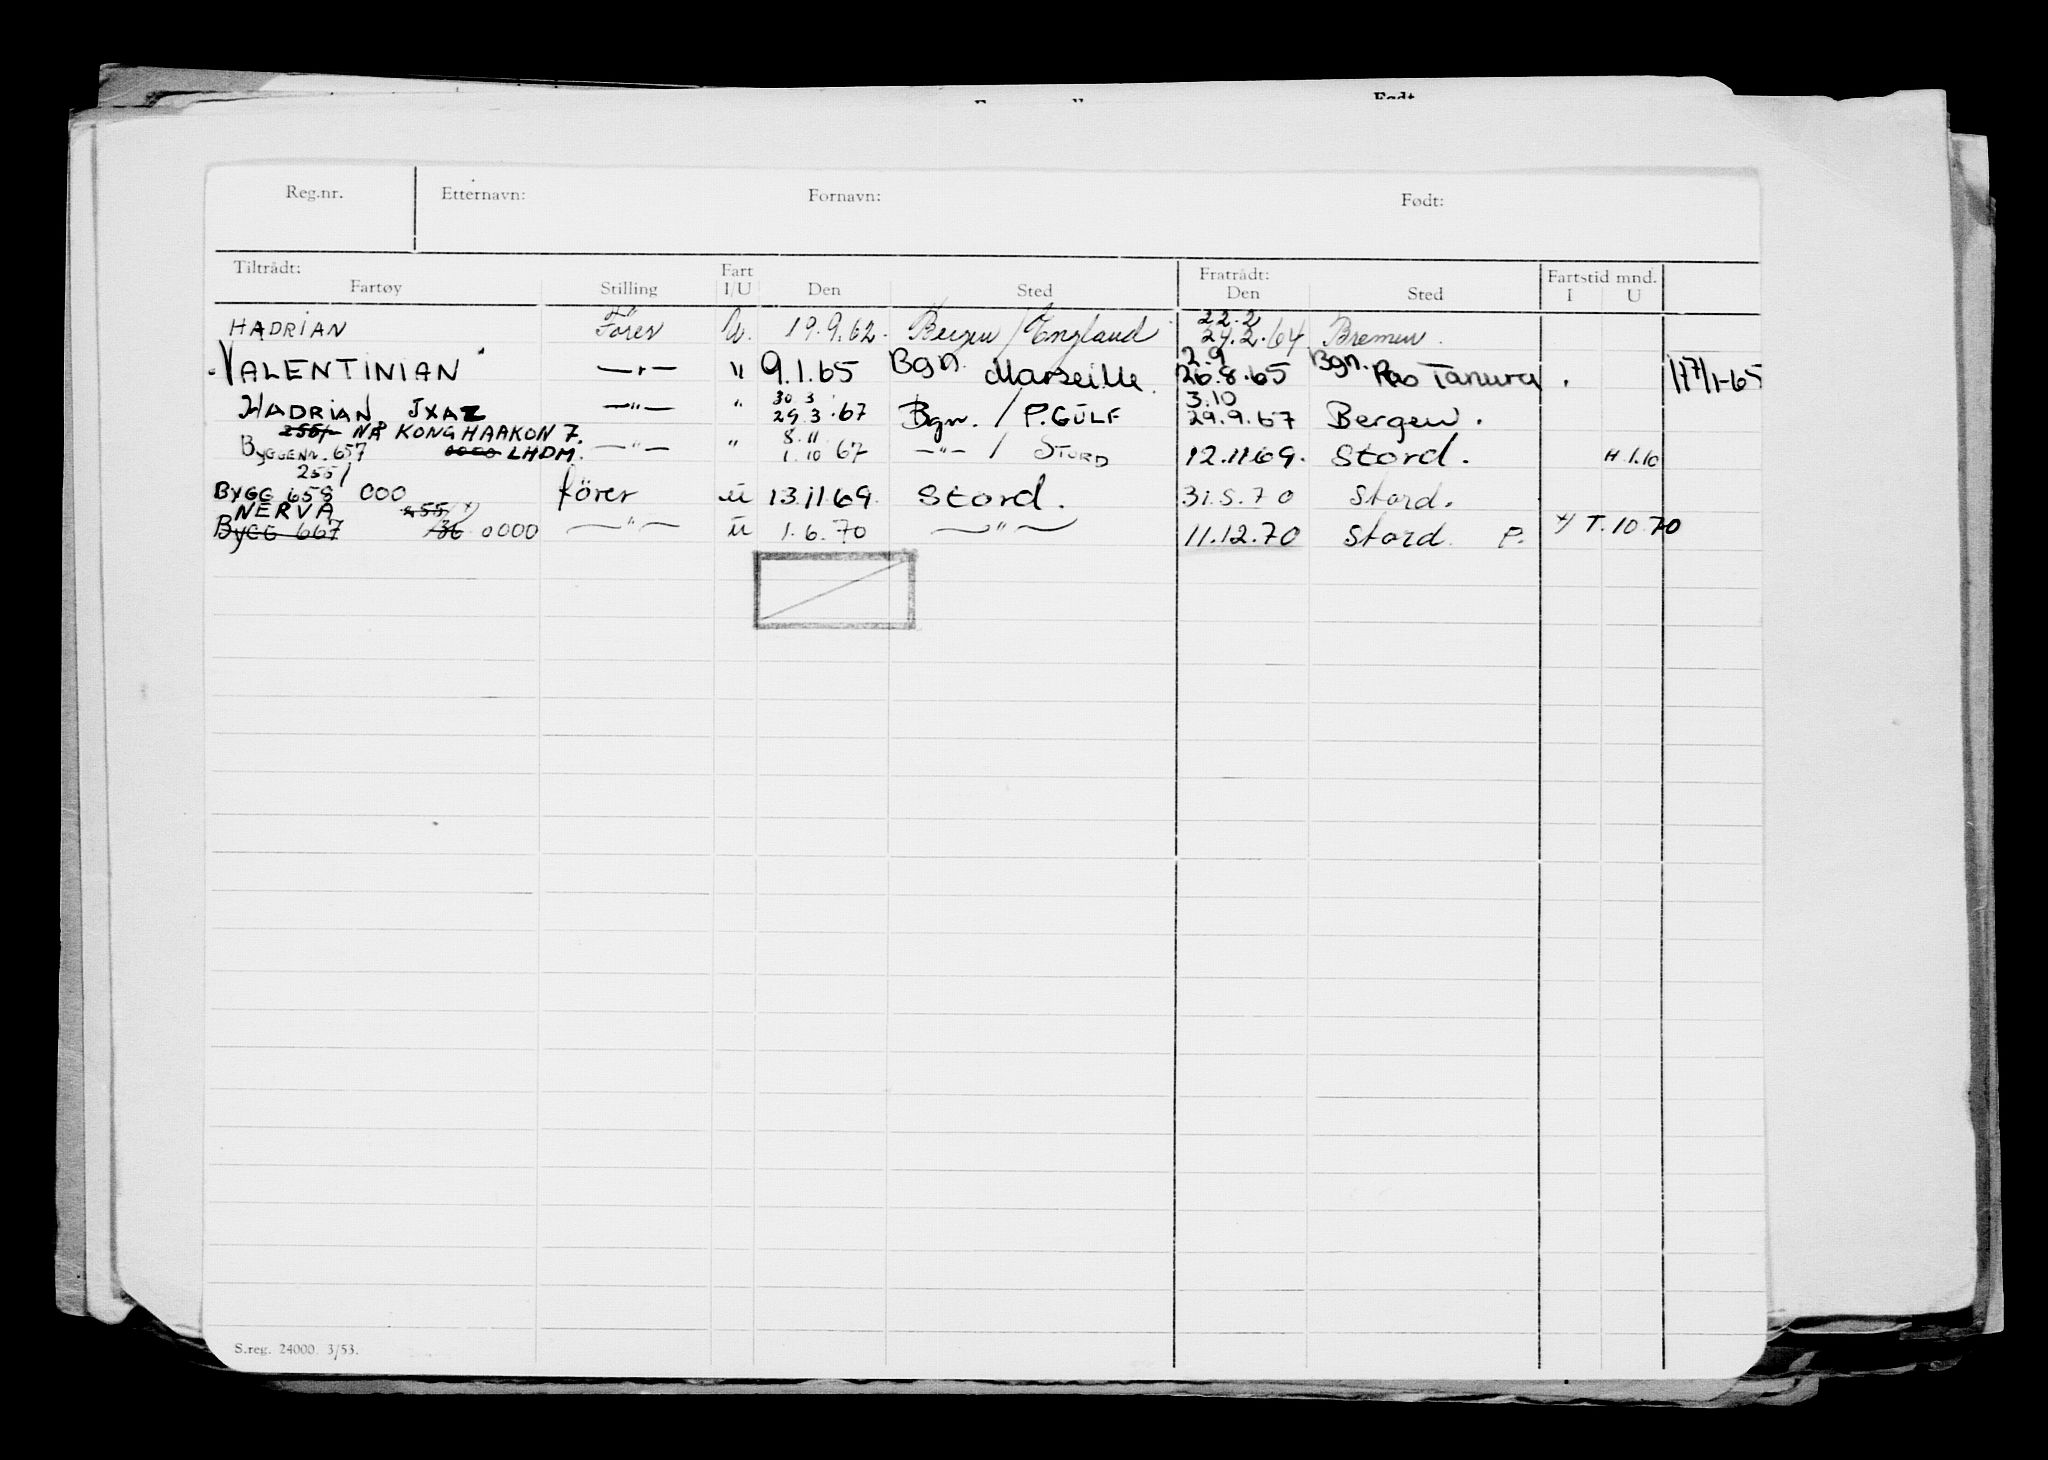 Født
Reg.nr. Etternavn: Fornavn: Født:
Tiltrådt: Fart Fratrådt: Fartstid mnd.
Fartøy Stilling I/U Den Sted Den Sted I U
22.2
HADRIAN Förer U. 19.9.62. Bergen / England 24.2.64 Bremen.
2.9
VALENTINIAN —"— " 9.1.65 Bgn. Marseille. 26.8.65 Bgn. Ras Tanura. 177/1-65
30 3 3.10
HADRIAN JXAZ —"— " 29.3.67 Bgn. / P.GULF 29.9.67 Bergen.
255/- NÅ KONG HAAKON 7. 8.11
BYGGENR. 657 0000 LHDM. —"— " 1.10 67 —"— / STORD 12.11.69. Stord. H.1.10
255/
BYGG 658 000 förer u 13.11.69. Stord. 31.5.70 Stord.
NERVA 255/
BYGG 667 136 0000 —"— u 1.6.70 —"— 11.12.70 Stord. P. x/ T.10.70
S.reg. 24000. 3/53.